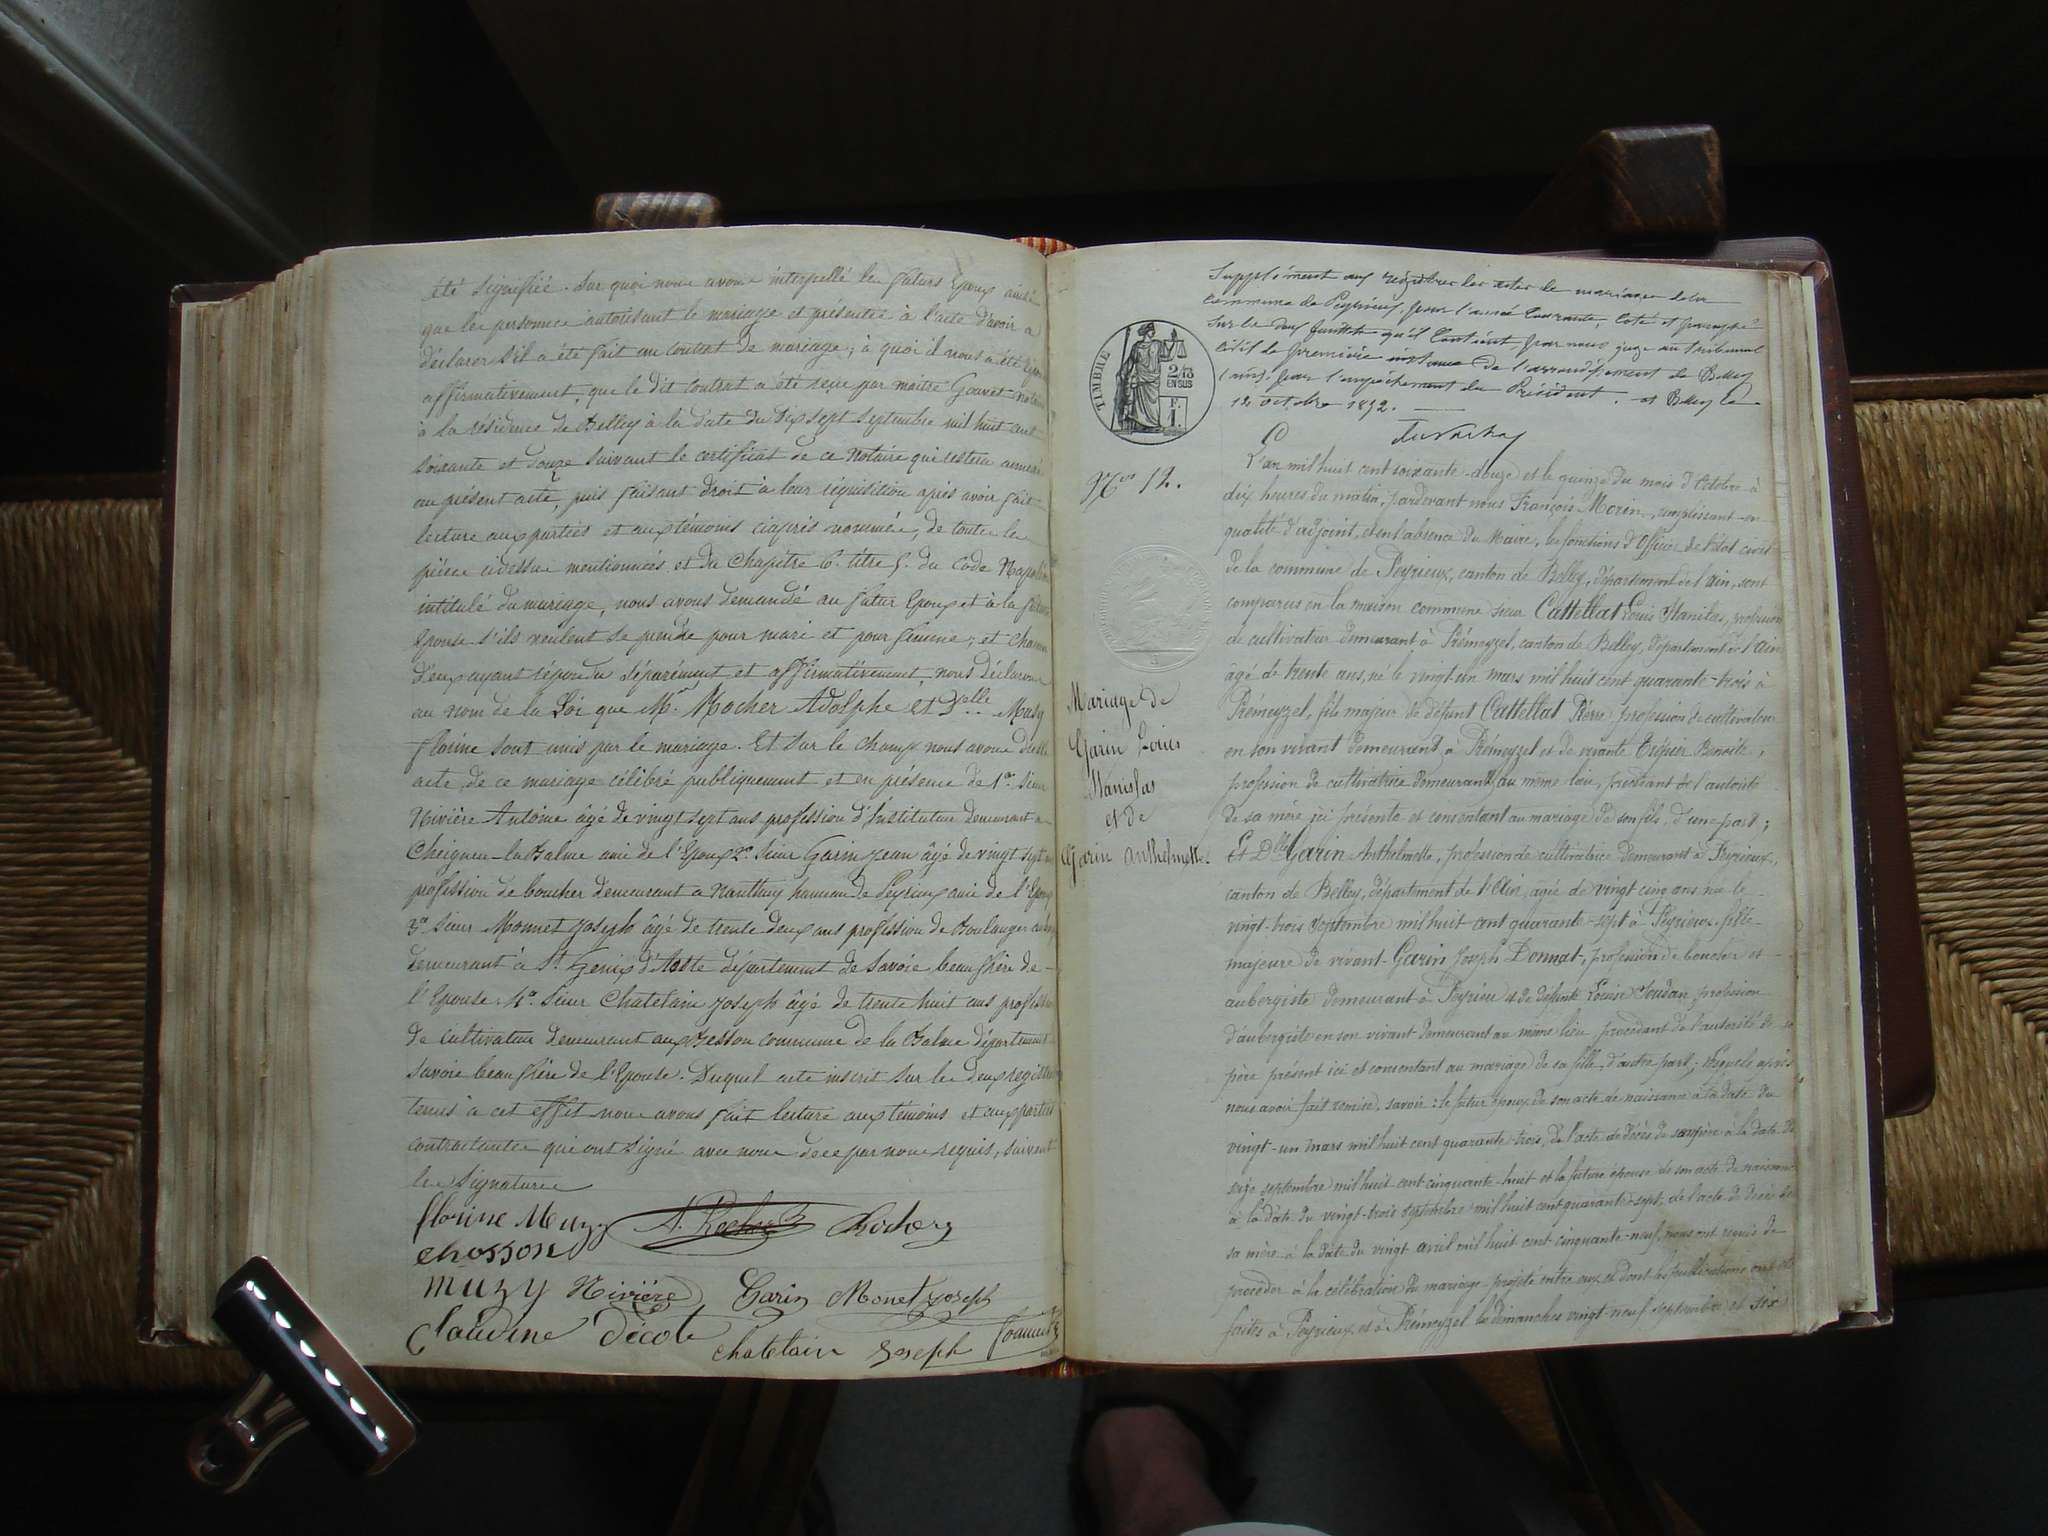 été signifié. Sur quoi nous avons interpellé les futurs Epoux ainsi
que les personnes autorisant le mariage et présentes à l'acte d'avoir à
déclarer s'il a été fait un contrat de mariage; à quoi il nous a été
affirmativement, que le dit contrat a été reçu par maître Gouvet notaire
à la résidence de Belley à la date du dix sept septembre mil huit cent
soixante et douze suivant le certificat de ce Notaire qui restera annexé
au présent acte, puis faisant droit à leur réquisition après avoir fait
lecture aux parties et aux témoins ciaprès nommés, de toutes les
pièces cidessus mentionnées et du Chapitre 6. titre 5. du Code Napoléon
intitulé du mariage, nous avons demandé au futur Epoux et à la future
Epouse s'ils veulent se prendre pour mari et pour femme; et chacun
d'eux ayant répondu séparément et affirmativement, nous déclarons
au nom de la Loi que Mr. Rocher Adolphe et Delle Muzy
florine sont unis par le mariage. Et sur le champ nous avons dressé
acte de ce mariage célébré publiquement et en présence de 1er. Sieur
Rivière Antoine âgé de vingt sept ans profession d'Instituteur demeurant à
Cheigneu-la-Balme ami de l'Epoux 2e. Sieur Garin Jean âgé de vingt sept
profession de boucher demeurant à Nanthuy hameau de Peyrieux ami de l'Epoux
3e. Sieur Monnet Joseph âgé de trente deux ans profession de Boulanger
demeurant à St. Genix d'Aoste département de Savoie, beau frère de
l'Epouse. 4e. Sieur Chatelain Joseph âgé de trente huit ans profession
de Cultivateur demeurant aux Besson commune de la Balme département
Savoie beau frère de l'Epouse. Duquel acte inscrit sur les deux registres
tenus à cet effet nous avons fait lecture aux témoins et aux parties
contractantes qui ont signé avec nous de ce par nous requis, suivent
les Signatures
florine Muzy A. Rocher Rocher
chosson
muzy Rivière Garin Monet Joseph
Claudine Décote
chatelain Joseph
Supplément aux registres des actes de mariages de la
commune de Peyrieux, pour l'année Courante, coté et paraphé
sur les deux feuillets qu'il Contient, par nous juge au tribunal
civil de première instance de l'arrondissement de Belley
(ain). pour l'empêchement du Président. à Belley le
12 octobre 1872.
TIMBRE
2/10
EN SUS
F.
1.
No 12.
L'an mil huit cent soixante-douze et le quinze du mois d'Octobre à
dix heures du matin, pardevant nous François Morin, remplissant en
qualité d'adjoint, et en l'absence du Maire, les fonctions d'Officier de l'état civil
de la commune de Peyrieux, canton de Belley, département de l'ain, sont
comparus en la maison commune sieur Cattellat Louis Stanislas, profession
de cultivateur demeurant à Prémeyzel, canton de Belley, département de l'Ain
âgé de trente ans, né le vingt-un mars mil huit cent quarante-trois à
Prémeyzel, fils majeur de défunt Cattellat Pierre, profession de cultivateur
en son vivant demeurant à Prémeyzel et de vivante Benoîte,
profession de cultivatrice demeurant au même lieu, procédant de l'autorité
de sa mère ici présente et consentant au mariage de son fils, d'une part;
Et Delle Garin Anthelmette, profession de cultivatrice demeurant à Peyrieux,
canton de Belley, département de l'Ain, âgée de vingt cinq ans, née le
vingt-trois septembre mil huit cent quarante-sept à Peyrieux, fille
majeure de vivant Garin Joseph Donnat, profession de boucher et
aubergiste demeurant à Peyrieu et de défunte Louise Soudan, profession
d'aubergiste en son vivant demeurant au même lieu, procédant de l'autorité de
père présent ici et consentant au mariage de sa fille, d'autre part, lesquels après
nous avoir fait remise, savoir: le futur époux de son acte de naissance à la date du
vingt-un mars mil huit cent quarante trois, de l'acte de décès de son père à la date du
seize septembre mil huit cent cinquante-huit et la future épouse de son acte de naissance
à la date du vingt-trois septembre mil huit cent quarante-sept, de l'acte de décès de
sa mère à la date du vingt avril mil huit cent cinquante-neuf, nous ont requis de
procéder à la célébration du mariage projeté entre eux et dont les publications ont été
faites à Peyrieux et à Prémeyzel les dimanches vingt-neuf septembre et six
Mariage de
Garin Louis
Stanislas
et de
Garin Anthelmette.